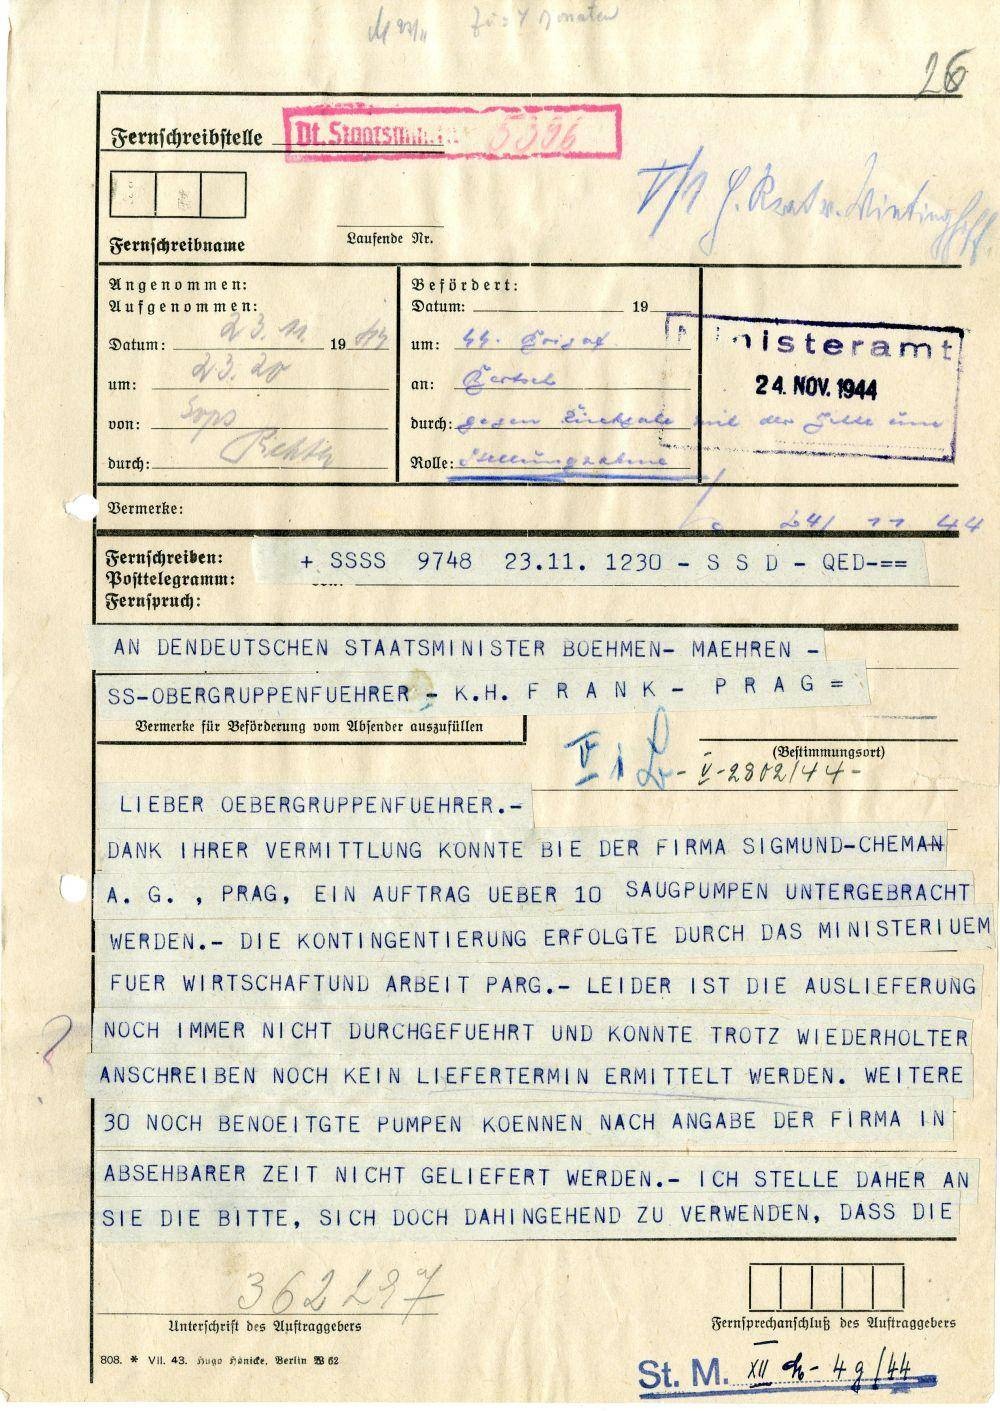 26
Fernschreibstelle
Dt. Staatsmin
5396
Fernschreibname
Laufende Nr.
Angenommen:
Aufgenommen:
Datum: 23.11. 1944
um: 23.20
von:
durch: Richter
Befördert:
Datum: 19
um:
an:
durch: gegen Rückgabe mit der Bitte um
Rolle: Stellungnahme
Ministeramt
24. NOV. 1944
24/ 11 44
Vermerke:
Fernschreiben:
Posttelegramm:
Fernspruch:
+ SSSS 9748 23.11. 1230 - S S D - QED-==
AN DENDEUTSCHEN STAATSMINISTER BOEHMEN- MAEHREN -
SS-OBERGRUPPENFUEHRER - K.H. F R A N K - P R A G =
Vermerke für Beförderung vom Absender auszufüllen
(Bestimmungsort)
V-2802/44-
LIEBER OEBERGRUPPENFUEHRER.-
DANK IHRER VERMITTLUNG KONNTE BIE DER FIRMA SIGMUND-CHEMAN
A. G. , PRAG, EIN AUFTRAG UEBER 10 SAUGPUMPEN UNTERGEBRACHT
WERDEN.- DIE KONTINGENTIERUNG ERFOLGTE DURCH DAS MINISTERIUEM
FUER WIRTSCHAFTUND ARBEIT PARG.- LEIDER IST DIE AUSLIEFERUNG
NOCH IMMER NICHT DURCHGEFUEHRT UND KONNTE TROTZ WIEDERHOLTER
ANSCHREIBEN NOCH KEIN LIEFERTERMIN ERMITTELT WERDEN. WEITERE
30 NOCH BENOEITGTE PUMPEN KOENNEN NACH ANGABE DER FIRMA IN
ABSEHBARER ZEIT NICHT GELIEFERT WERDEN.- ICH STELLE DAHER AN
SIE DIE BITTE, SICH DOCH DAHINGEHEND ZU VERWENDEN, DASS DIE
362297
Unterschrift des Auftraggebers
Fernsprechanschluß des Auftraggebers
808. * VII. 43. Hugo Hänicke, Berlin W 62
St. M. XII h- 4g/44